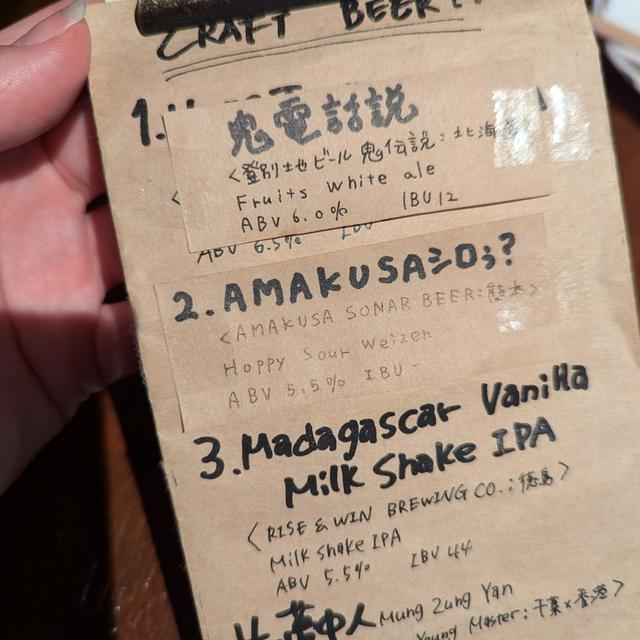 CRAFT BEER!!
1.
鬼電話説
<登別地ビール 鬼伝説:北海道
Fruits white ale
ABV 6.0% IBU 12
ABV 6.5% IBU
2. AMAKUSAシロぅ?
<AMAKUSA SONAR BEER:熊本>
Hoppy Sour Weizen
ABV 5.5% IBU -
3. Madagascar Vanilla
Milk Shake IPA
<RISE & WIN BREWING CO.:徳島>
Milk Shake IPA
ABV 5.5% IBU 44
4. 夢中人 Mung Zung Yan
Young Master:千葉×香港>